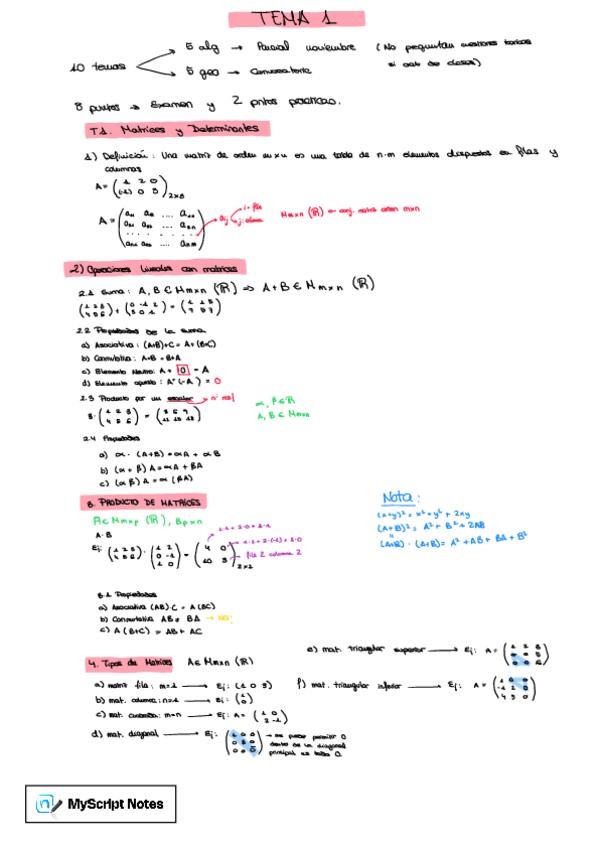 TEMA 1
10 temas
5 alg → Parcial noviembre (No preguntan cuestiones teóricas
5 geo → Convocatoria
8 puntos → Examen y 2 pntos practicas.
T1. Matrices y Determinantes
1) Definición: Una matriz de orden mxn es una tabla de n·m elementos dispuestos en filas y
columnas
A = ( 1 2 0
(-1) 0 3 ) 2x3
A = ( a₁₁ a₁₂ .... a₁ₙ
aij i = fila
j: columna
Mmxn (ℝ) ← conj. matriz orden mxn
2) Operaciones lineales con matrices
2.1 Suma: A, B ∈ Mmxn (ℝ) ⇒ A+B ∈ Mmxn (ℝ)
(1 2 3
4 5 6) + (0 -1 2
3 0 1) = (1 1 5
7 5 7)
2.2 Propiedades de la suma
a) Asociativa: (A+B)+C = A+(B+C)
b) Conmutativa: A+B = B+A
c) Elemento Neutro: A + 0 = A
d) Elemento opuesto: A+(-A) = 0
2.3 Producto por un escalar → nº real
3 · (1 2 3
4 5 6) = (3 6 9
12 15 18)
α, β ∈ ℝ
A, B ∈ Mmxn
2.4 Propiedades
a) α · (A+B) = αA + αB
b) (α + β) A = αA + βA
c) (αβ) A = α (βA)
3. PRODUCTO DE MATRICES
A ∈ Mmxp (ℝ), Bpxn
A · B
Ej: (1 2 3
4 5 6) · (1 2
0 -1
1 0) = (4 0
10 3) 2x2
1·1 + 2·0 + 3·1
1·2 + 2·(-1) + 3·0
fila 2 columna 2
Nota:
(x+y)² = x² + y² + 2xy
(A+B)² = A² + B² + 2AB
(A+B) · (A+B) = A² + AB + BA + B²
3.1 Propiedades
a) Asociativa (AB)·C = A(BC)
b) Conmutativa AB ≠ BA → NO!
c) A(B+C) = AB + AC
4. Tipos de Matrices A ∈ Mmxn (ℝ)
a) matriz fila: m=1 → Ej: (1 0 3)
b) mat. columna: n=1 → Ej: (1
0)
c) mat. cuadrada: m=n → Ej: A = (1 0
2 -1)
d) mat. diagonal → Ej:
→ no puede permitir 0
dentro de la diagonal
principal
e) mat. triangular superior → Ej: A =
f) mat. triangular inferior → Ej: A = (1 0 0
-1 2 0
4 5 0)
MyScript Notes